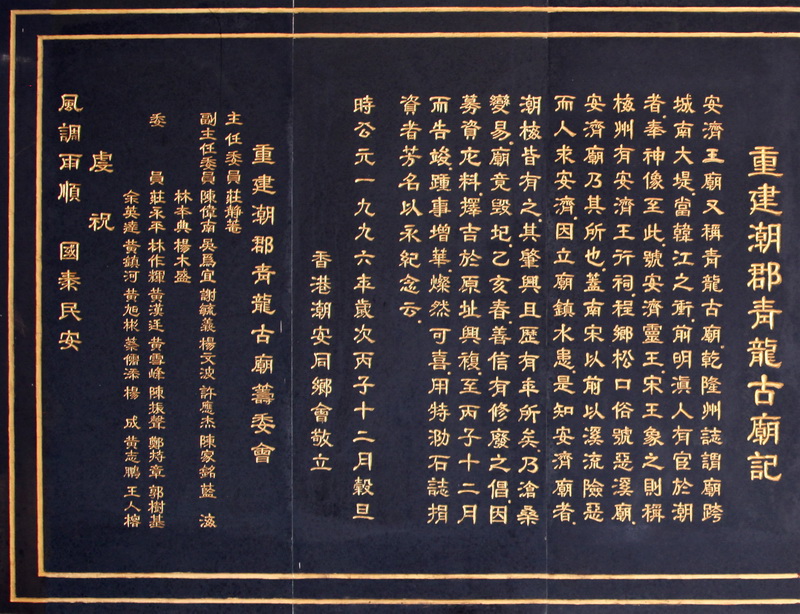 重建潮郡青龍古廟記
安濟王廟又稱青龍古廟.乾隆州誌謂廟跨
城南大堤.當韓江之衝.前明滇人有官於潮
者.奉神像至此.號安濟靈王.宋王象之則稱
梅州有安濟王行祠.程鄉松口俗號惡溪廟.
安濟廟乃其所也.蓋南宋以前以溪流險惡
而人求安濟.因立廟鎮水患.是知安濟廟者.
潮梅皆有之.其肇興且歷有年所矣.乃滄桑
變易.廟竟毀圮.乙亥春.善信有修廢之倡.因
募資庀料.擇吉於原址興復.至丙子十二月
而告竣.踵事增華.燦然可喜.用特泐石誌捐
資者芳名以永紀念云.
時公元一九九六年歲次丙子十二月穀旦
香港潮安同鄉會敬立
重建潮郡青龍古廟籌委會
主任委員 莊靜菴
副主任委員 陳偉南 吳為宜 謝毓義 楊文波 許應杰 陳家銘 藍海
林本典 楊木盛
委員 莊永平 林作輝 黃漢廷 黃雪峰 陳振聲 鄭持章 郭樹基
余英達 黃鎮河 黃旭彬 蔡儒添 楊成 黃志鵬 王人榕
虔祝
風調雨順 國泰民安